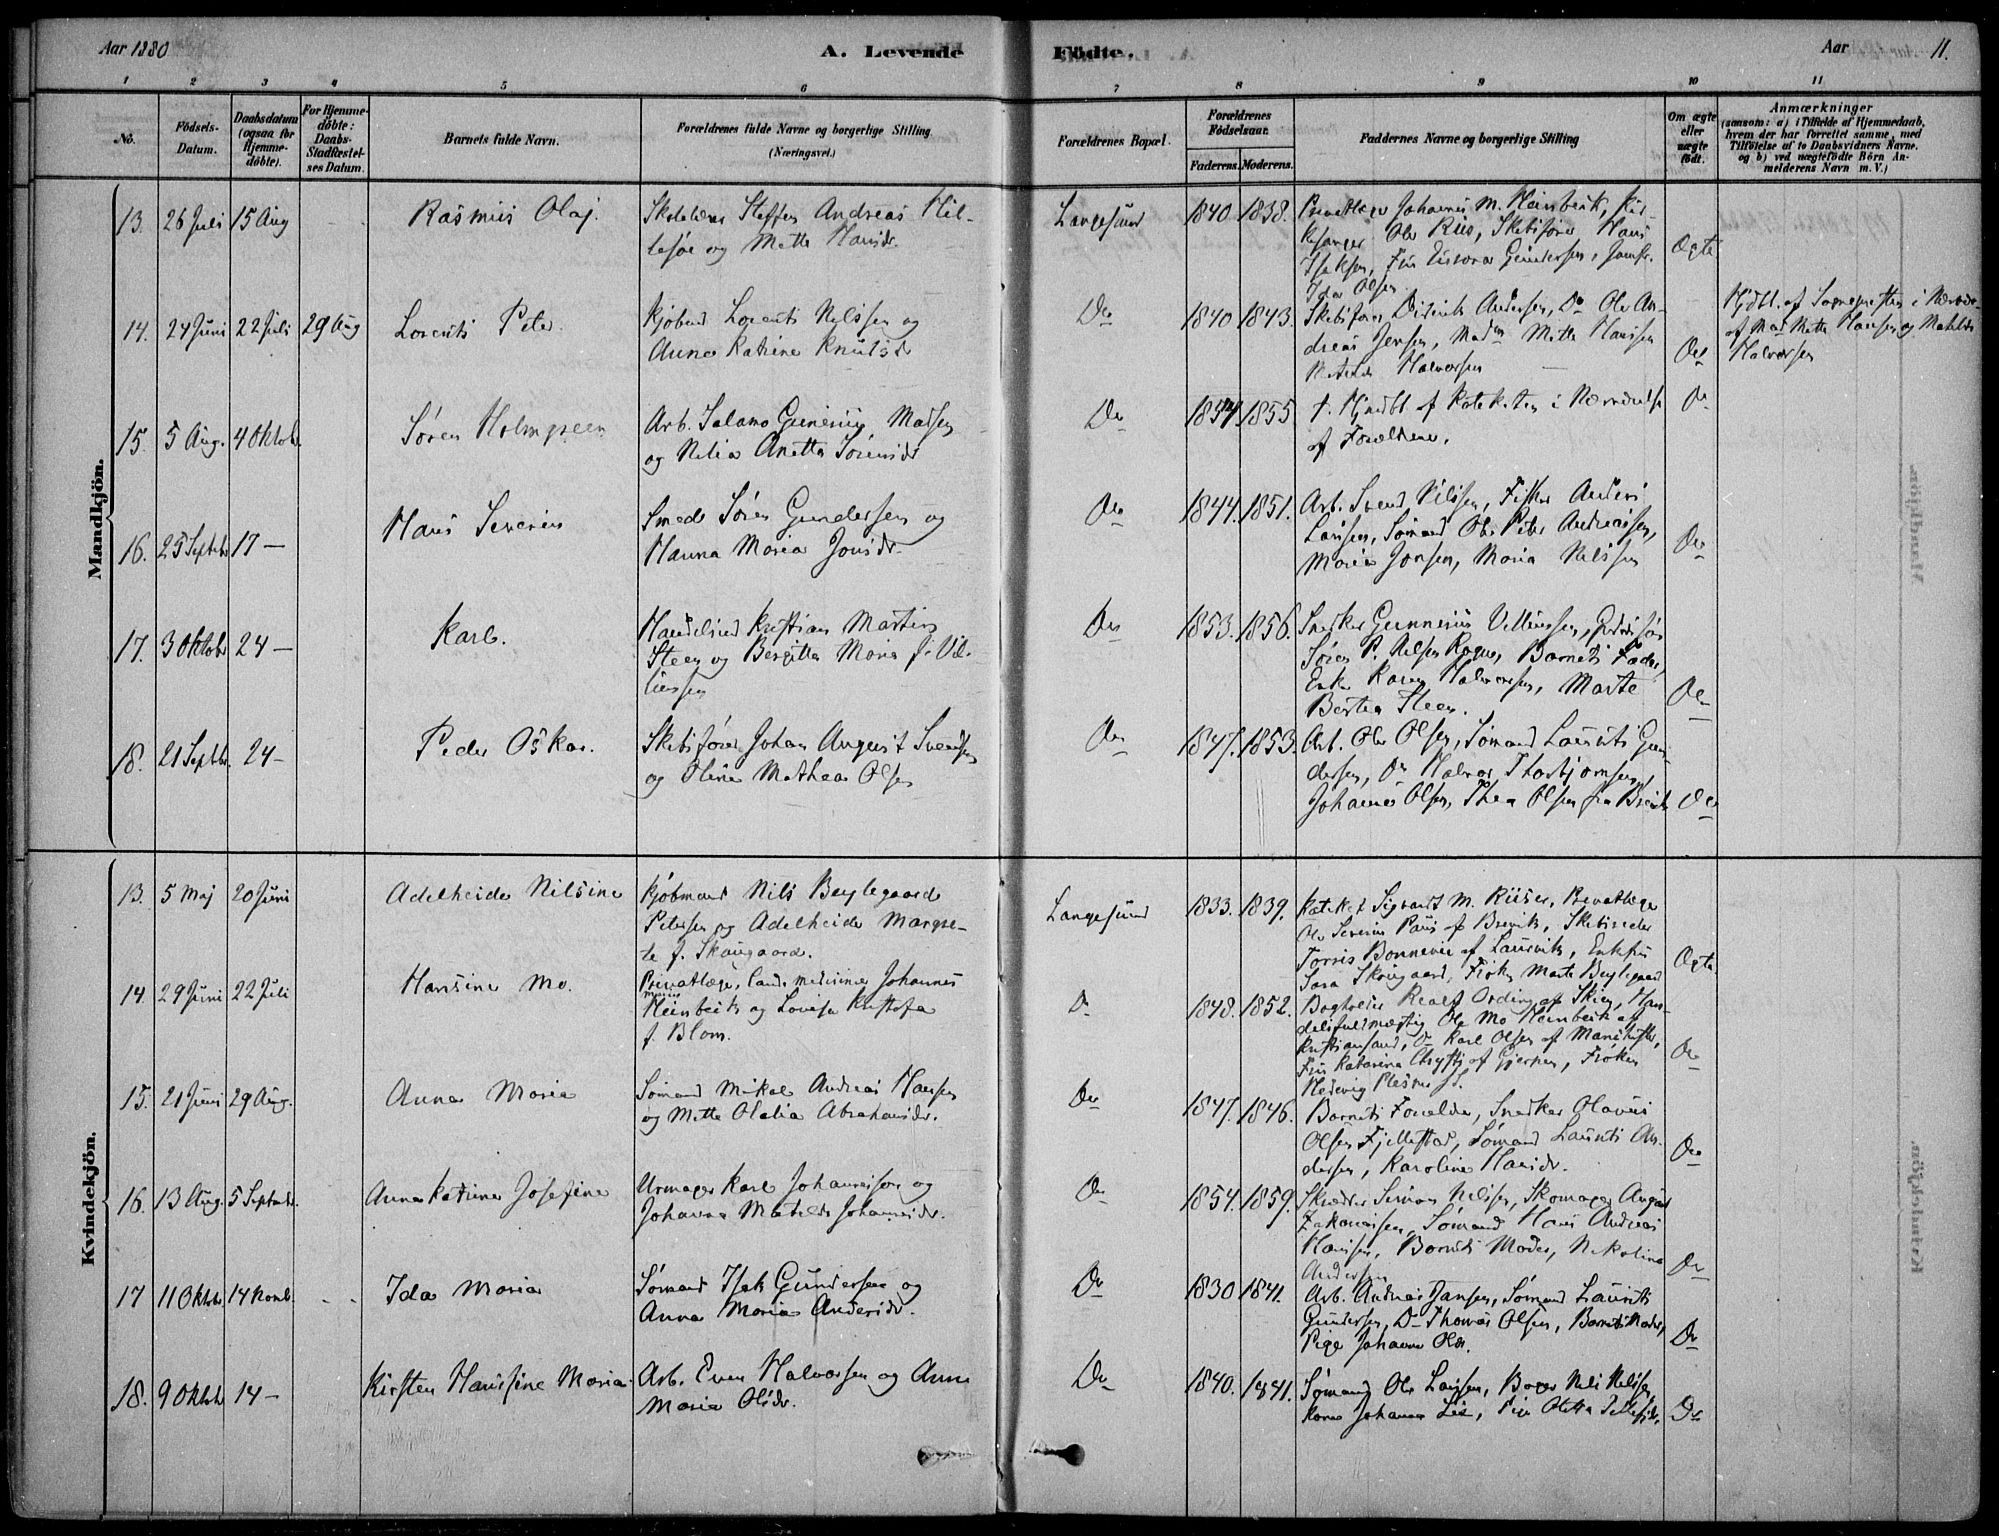 Aar 1880
A. Levende
Fødte.
Aar
11.
1 2 3 4 5 6 7 8 9 10 11
No.
Födsels-
Datum.
Daabsdatum
(ogsaa for
Hjemme-
döbte).
For Hjemme-
döbte:
Daabs-
Stadfæstel-
ses Datum.
Barnets fulde Navn.
Forældrenes fulde Navne og borgerlige Stilling
(Næringsvei.)
Forældrenes Bopæl.
Forældrenes
Födselsaar.
Faderens. Moderens.
Faddernes Navne og borgerlige Stilling
Om ægte
eller
uægte
født.
Anmærkninger
(saasom: a) i Tilfælde af Hjemmedaab,
hvem der har forrettet samme, med
Tilföielse af to Daabsvidners Navne.
og b) ved uægtefödte Börn An-
melderens Navn m.V.)
Mandkjön.
13. 26 Juli 15 Aug
Rasmus Olaf.
Skolelærer Steffen Andreas Hil-
lesøe og Mette Hansdr.
Langesund
1840 1838.
Privatlæge Johannes M. Heinbeck, Kir-
kesanger Ole Riis, Skibsfører Hans
Isaksen, Gundersen, Jomfr.
Ida Olsen
Ægte
14. 24 Juni 22 Juli 29 Aug
Lorents Peter
Kjøbmd Lorents Nilssen og
Anna Katrine Knutsdr
Do
1840 1843.
Skibsfører Didrik Andersen, Do Ole An-
dreas Jensen, Madm Mette Hansen
Matilde Halvorsen
Do
Hjdbt. af Sognepresten i Nærvær
af Mad Mette Hansen og Matilde
Halvorsen
15. 5 Aug. 4 Oktob.
Søren Holmgreen
Arb. Salamo Gunerius Madsen
og Nilia Anette Sørensdr
Do
1854 1855
t. Hjmdbt af Kateketen i Nærværelse
af Forældrene.
Do
16. 25 Septbr 17 —
Hans Severin
Smed Søren Gundersen og
Hanna Maria Jonsdr.
Do
1844. 1851.
Arb. Svend Nilssen, Fisker Anders
Larsen, Sømand Ole Peter Andreassen,
Maria Jonsen, Maria Nilssen
Do
17. 3 Oktobr 24 —
Karl.
Handelsmd Kristian Martin
Steen og Bergitte Maria f. Vil-
lumsen
Do
1853. 1856.
Snedker Gunnerius Villumsen,
Søren P. Nilsen Barnets Fader,
Enke Karen Halvorsen, Marte
Bertea Steen.
Do
18. 21 Septbr. 24 —
Peder Oskar.
Skibsfører Johan August Svendsen
og Oline Mathea Olsen
Do
1847. 1853.
Arb. Ole Olsen, Sømand Laurits Gun-
dersen, Do Halvor Thorbjørnsen,
Johanne Olsen, Thea Olsen fra Brevik
Do
Kvindekjön.
13. 5 Maj 20 Juni
Adelheide Nilsine
Kjøbmand Nils Bøylegaard
Petersen og Adelheide Margre-
te f. Skougaard.
Langesund
1833. 1839.
Kateket Sigvardt M. Riiser, Privatlæge
Ole Severin Paus af Brevik, Skibsreder
Torris Bonnevie af Laurvik, Enkefru
Sara Skougaard, Frøken Marte Bøylegaard
Ægte
14. 29 Juni 22 Juli
Hansine Mo.
Privatlæge, Cand. medicinæ Johannes
Heinbeck og Lovise Kristofa
f. Blom.
D
1848. 1852.
Bogholder Realf Ording af Skien, Han-
delsfuldmægtig Ole Mo Heinbeck af
Kristiansand, Do Karl Olsen af Manchester,
Fru Katarina af Gjerpen, Frøken
Hedevig
Do
15. 21 Juni 29 Aug.
Anna Maria
Sømand Mikal Andreas Hansen
og Mette Olalia Abrahamsdr.
Do
1847. 1846.
Barnets Forældre, Snedker Olavus
Olsen Fjellestad, Sømand Laurits An-
dersen, Karoline Hansdr.
Do
16. 13 Aug. 5 Septembr.
Anna Katrine Josefine
Urmager Karl Johannessen og
Johanne Matilde Johannesdr.
Do
1854. 1859.
Skrædder Simon Nilsen, Skomager August
Zakariassen, Sømand Hans Andreas
Hansen, Barnets Moder, Nikoline
Andersen
Do
17 11 Oktobr 14 Novmb.
Ida Maria
Sømand Isak Gundersen og
Anna Maria Andersdr.
Do
1830 1841.
Arb. Andreas Jansen, Sømand Laurits
Gundersen, Do Thomas Olsen, Barnets Moder,
Pige Johanne Olsen.
Do
18. 9 Oktob 14 —
Kirsten Hansine Maria
Arb. Even Halvorsen og Anne
Maria Olsdr.
Do
1840. 1841.
Sømand Ole Larsen, Bager Nils Nilssen
Kone Johanne Lie, Pige Olette Tellefsdr.
Do